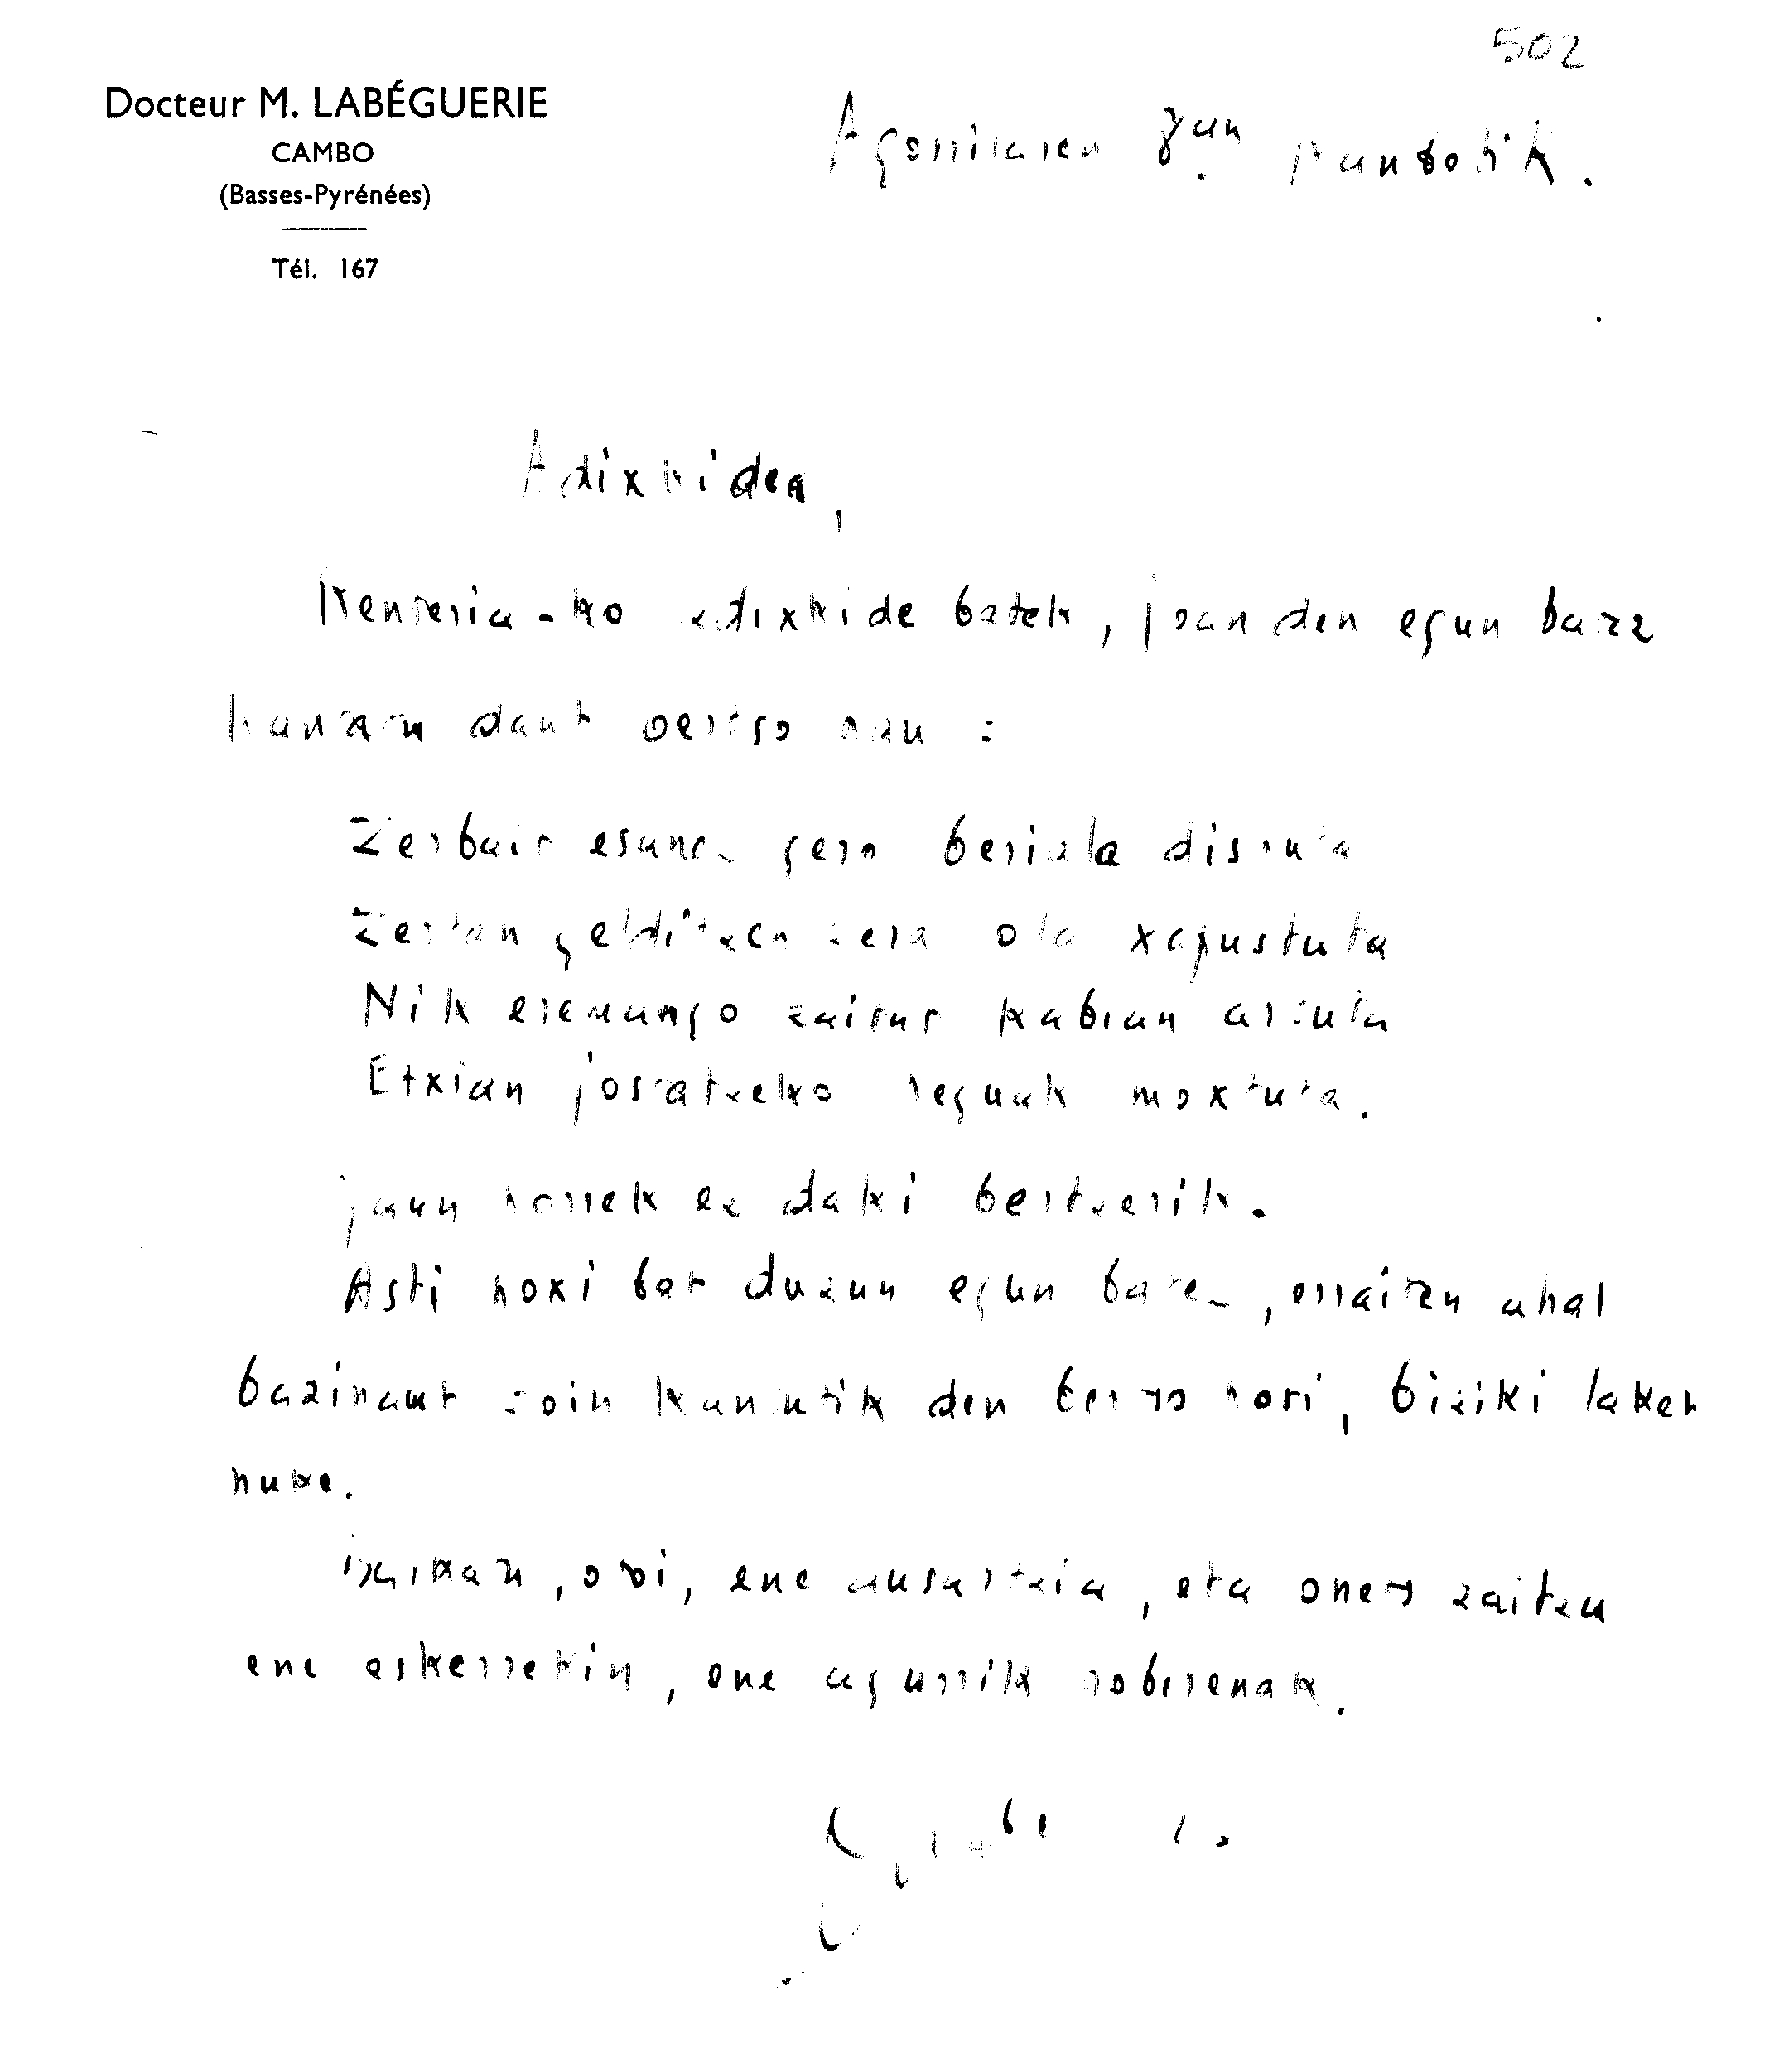 502
Docteur M. LABÉGUERIE
CAMBO
(Basses-Pyrénées)
Tél. 167
Agorrilaren 8an Kanbotik.
Adixkidea,
Renteria-ko adixkide batek, joan den egun batez
kantatu daut bertso hau :
Zerbait esanez gero beriala disputa
Zertan gelditzen zera ola xapustuta
Nik eramango zaitut kabian artuta
Etxian jostatzeko heguak moxtuta.
jaun horrek ez daki bertzerik.
Asti hoxi bat duzun egun batez, erraiten ahal
bazinaut zoin kantutik den bertso hori, biziki laket
nuke.
barkatu, othoi, ene ausartzia, eta onets zaitzu
ene eskerrekin, ene agurrik hoberenak.